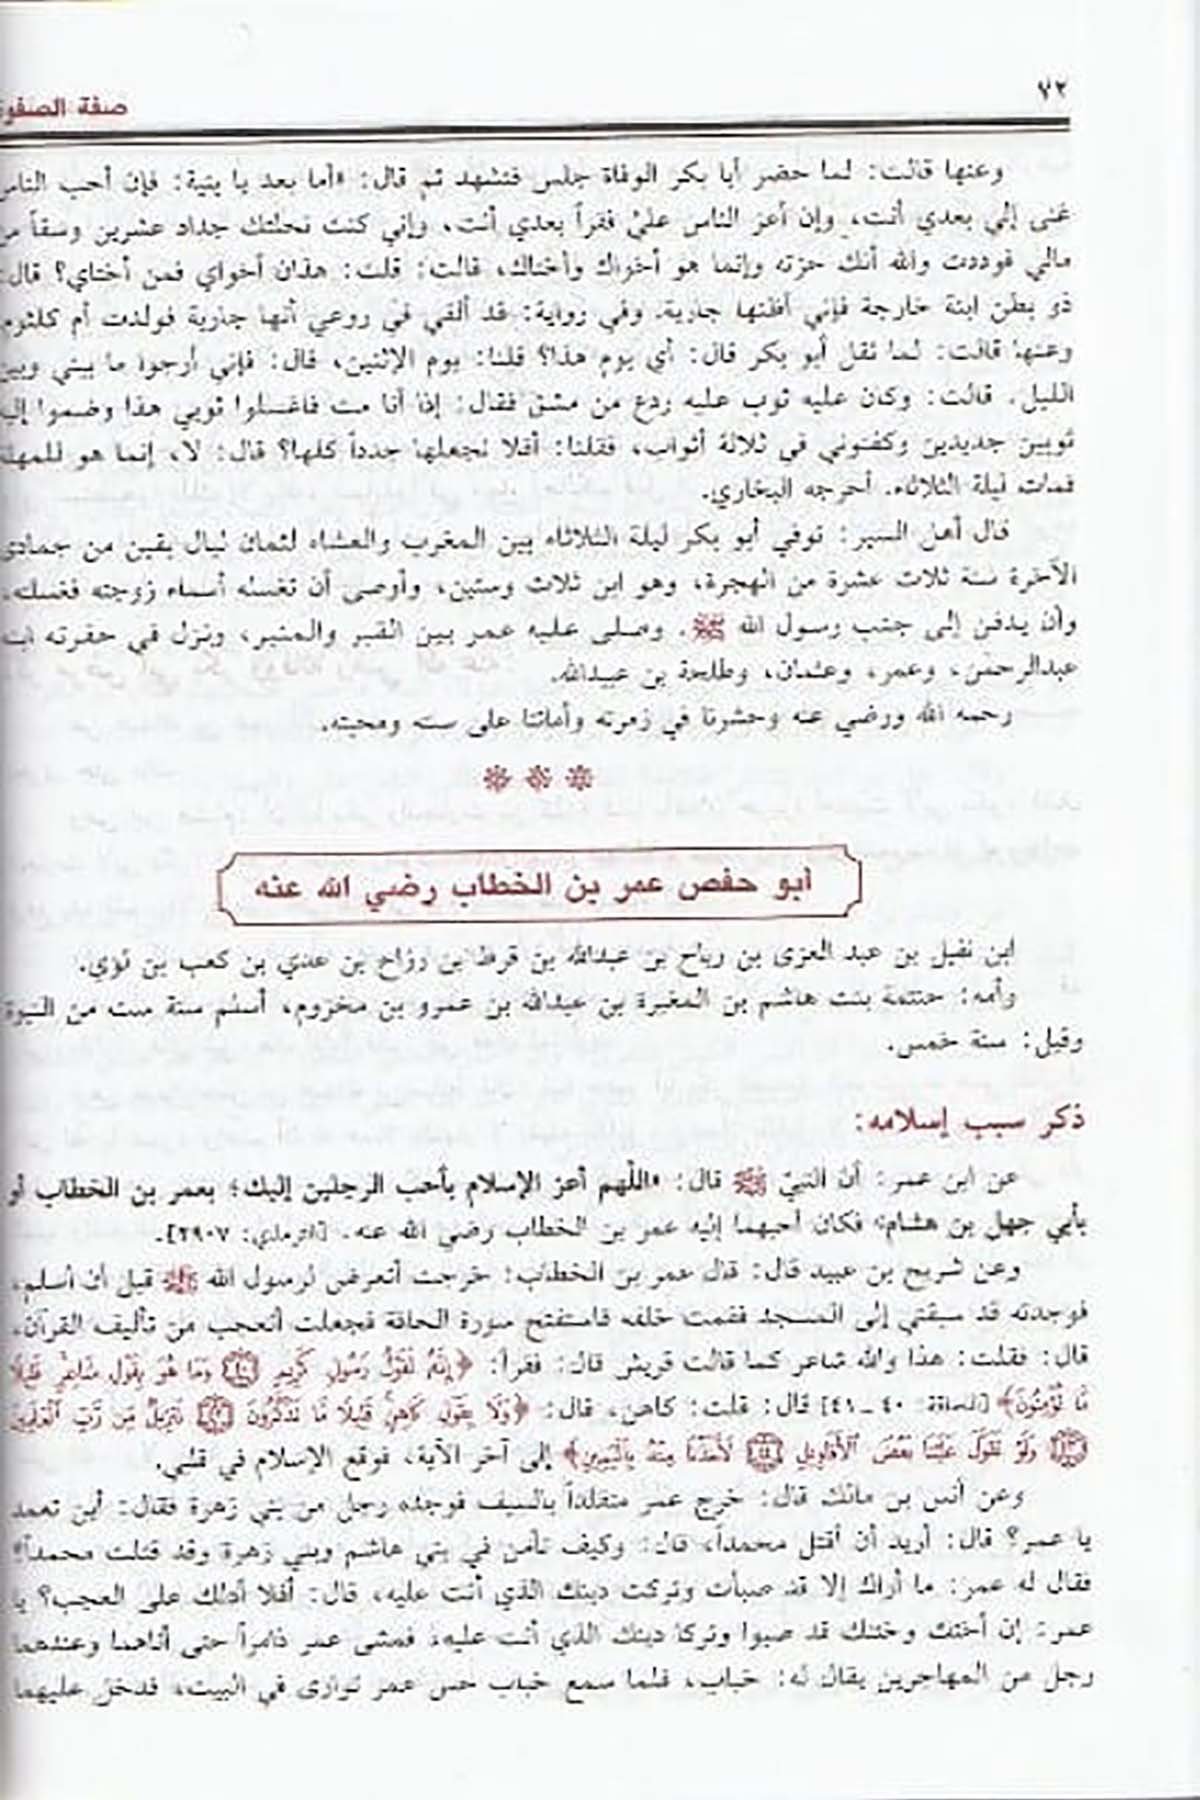 ٧٢
صفة الصفوة
وعنها قالت: لما حضر أبا بكر الوفاة جلس فتشهد ثم قال: «أما بعد يا بنية: فإن أحب الناس
غنى إلي بعدي أنت، وإن أعز الناس عليّ فقراً بعدي أنت، وإني كنت نحلتك جداد عشرين وسقاً من
مالي فوددت والله أنك حزته وإنما هو أخواك وأختاك، قالت: قلت: هذان أخواي فمن أختاي؟ قال:
ذو بطن ابنة خارجة فإني أظنها جارية. وفي رواية: قد ألقي في روعي أنها جارية فولدت أم كلثوم.
وعنها قالت: لما ثقل أبو بكر قال: أي يوم هذا؟ قلنا: يوم الإثنين، قال: فإني أرجوه ما بيني وبين
الليل. قالت: وكان عليه ثوب عليه ردع من مشق فقال: إذا أنا مت فاغسلوا ثوبي هذا وضموا إليه
ثوبين جديدين وكفنوني في ثلاثة أثواب، فقلنا: أفلا نجعلها جدداً كلها؟ قال: لا، إنما هو للمهلة
فمات ليلة الثلاثاء. أخرجه البخاري.
قال أهل السير: توفي أبو بكر ليلة الثلاثاء بين المغرب والعشاء لثمان ليال بقين من جمادى
الآخرة سنة ثلاث عشرة من الهجرة، وهو ابن ثلاث وستين، وأوصى أن تغسله أسماء زوجته فغسلته،
وأن يدفن إلى جنب رسول الله ﷺ. وصلى عليه عمر بين القبر والمنبر، ونزل في حفرته ابنه
عبدالرحمٰن، وعمر، وعثمان، وطلحة بن عبيدالله.
رحمه الله ورضي عنه وحشرنا في زمرته وأماتنا على سنته ومحبته.
أبو حفص عمر بن الخطاب رضي الله عنه
ابن نفيل بن عبد العزى بن رياح بن عبدالله بن قرط بن رزاح بن عدي بن كعب بن لؤي.
وأمه: حنتمة بنت هاشم بن المغيرة بن عبدالله بن عمرو بن مخزوم، أسلم سنة ست من النبوة
وقيل: سنة خمس.
ذكر سبب إسلامه:
عن ابن عمر: أن النبيّ ﷺ قال: «اللّهم أعز الإسلام بأحب الرجلين إليك؛ بعمر بن الخطاب أو
بأبي جهل بن هشام» فكان أحبهما إليه عمر بن الخطاب رضي الله عنه. [الترمذي: ٢٩٠٧].
وعن شريح بن عبيد قال: قال عمر بن الخطاب: خرجت أتعرض لرسول الله ﷺ قبل أن أسلم،
فوجدته قد سبقني إلى المسجد فقمت خلفه فاستفتح سورة الحاقة فجعلت أتعجب من تأليف القرآن،
قال: فقلت: هذا والله شاعر كما قالت قريش قال: فقرأ: ﴿إِنَّهُ لَقَوْلُ رَسُولٍ كَرِيمٍ ﴿٤٠﴾ وَمَا هُوَ بِقَوْلِ شَاعِرٍ قَلِيلًا
مَّا تُؤْمِنُونَ﴾ [الحاقة: ٤٠ ـ ٤١] قال: قلت: كاهن، قال: ﴿وَلَا بِقَوْلِ كَاهِنٍ قَلِيلًا مَّا تَذَكَّرُونَ ﴿٤٢﴾ تَنزِيلٌ مِّن رَّبِّ الْعَالَمِينَ
﴿٤٣﴾ وَلَوْ تَقَوَّلَ عَلَيْنَا بَعْضَ الْأَقَاوِيلِ ﴿٤٤﴾ لَأَخَذْنَا مِنْهُ بِالْيَمِينِ﴾ إلى آخر الآية، فوقع الإسلام في قلبي.
وعن أنس بن مالك قال: خرج عمر متقلداً بالسيف فوجده رجل من بني زهرة فقال: أين تعمد
يا عمر؟ قال: أريد أن أقتل محمداً، قال: وكيف تأمن في بني هاشم وبني زهرة وقد قتلت محمداً؟
فقال له عمر: ما أراك إلا قد صبأت وتركت دينك الذي أنت عليه، قال: أفلا أدلك على العجب؟ يا
عمر: إن أختك وختنك قد صبوا وتركا دينك الذي أنت عليه، فمشى عمر ذامراً حتى أتاهما وعندهما
رجل من المهاجرين يقال له: خباب، فلما سمع خباب حس عمر توارى في البيت، فدخل عليهما